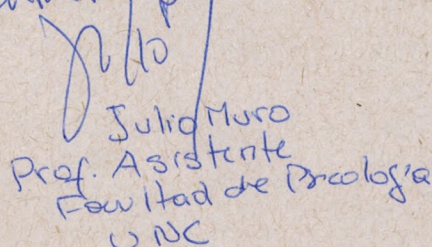 Julio Muro
Prof. Asistente
Facultad de Psicología
UNC